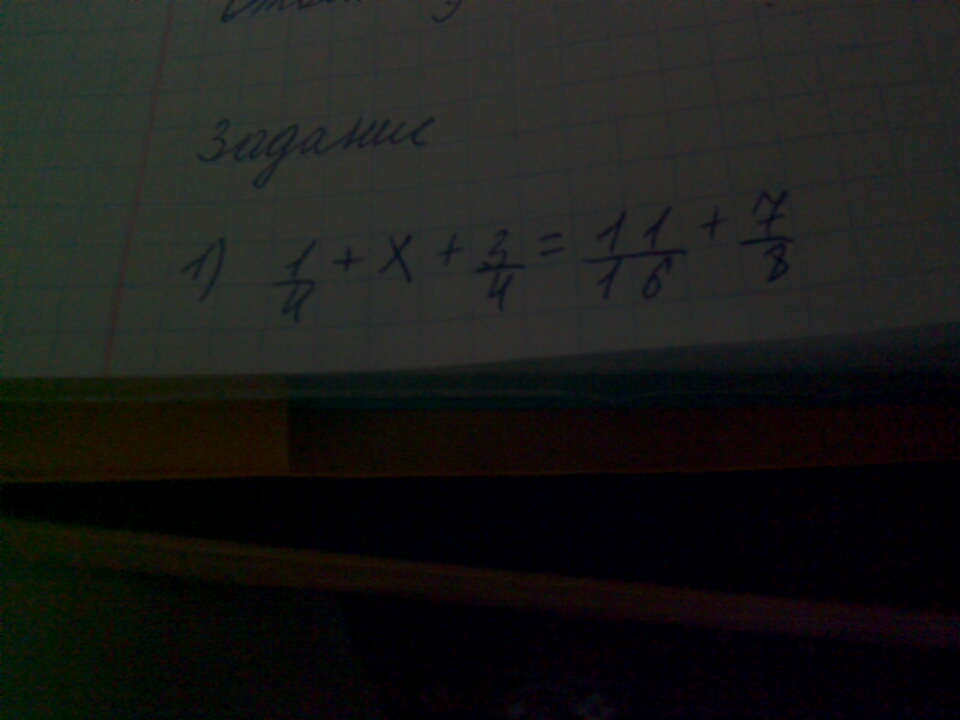 Задание
1) 1/4 + x + 3/4 = 11/16 + 7/8